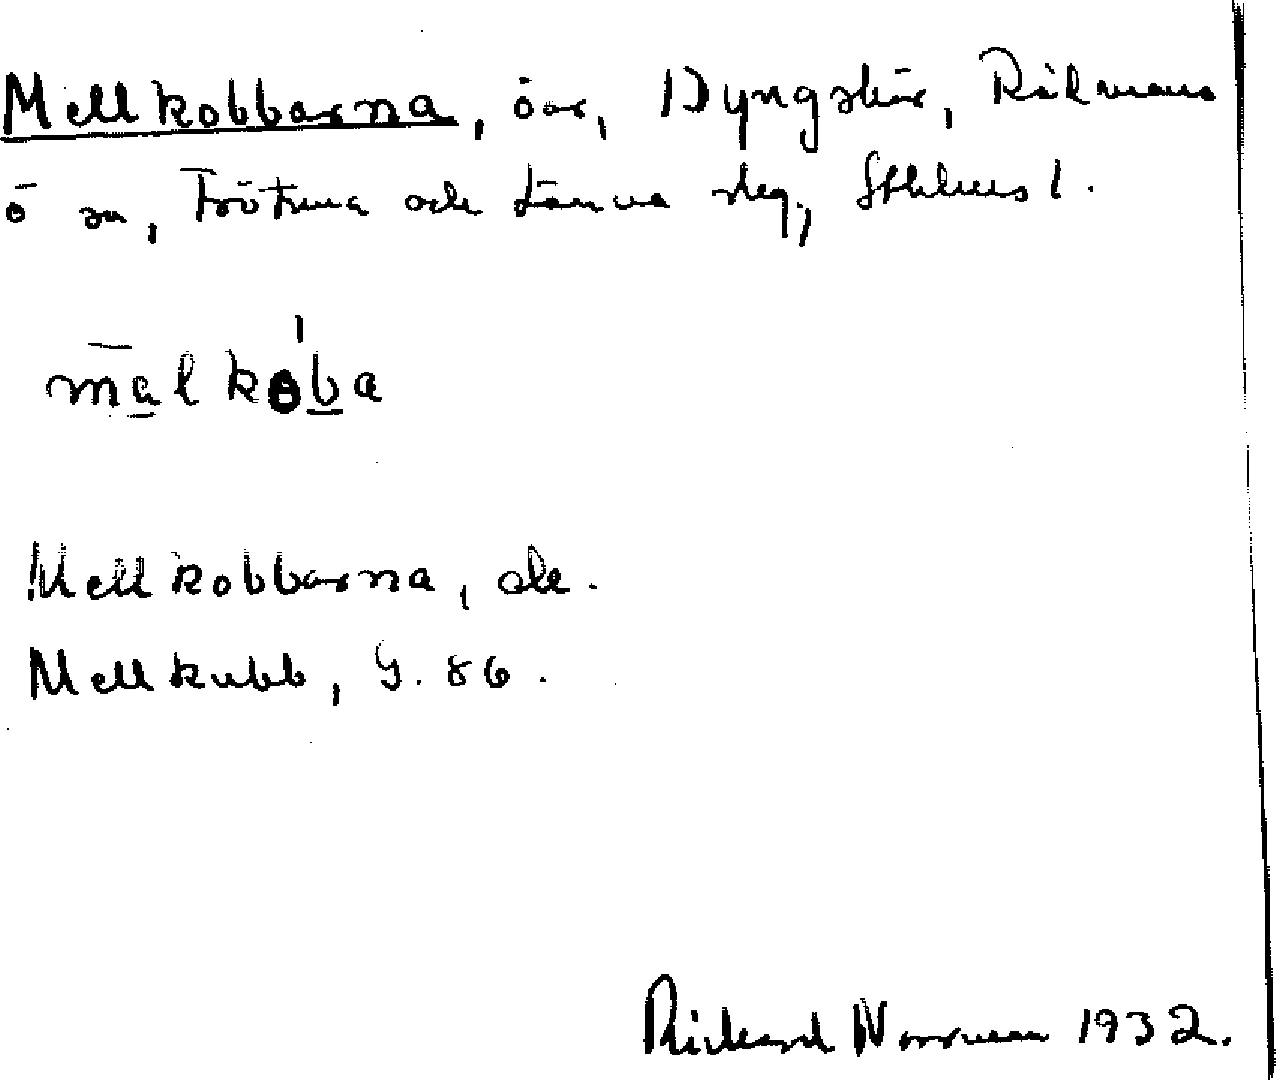 Mellkobbarna, öar, Dyngskär, Rådmans
ö sn, Frötuna och Länna skg, Sthlms l.
malkoba
Mellkobbarna, de.
Mellkubb, G. 86.
Rickard Norrman 1932.